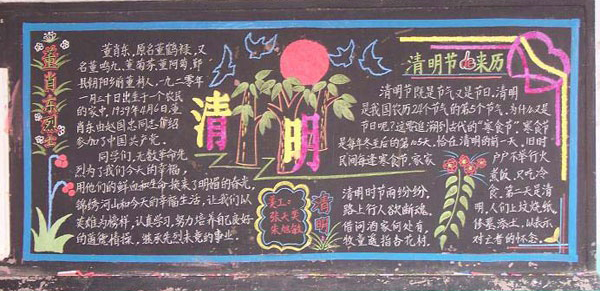 董肖东烈士
董肖东，原名董鹤禄，又
名董鸣九、董菊荪、董阿菊，鄞
县朝阳乡前董村人，一九二零年
一月二十日出生于一个农民
的家中，1937年4月6日，董
肖东由赵国忠同志介绍
参加了中国共产党。
同学们，无数革命先
烈为了我们今天的幸福，
用他们的鲜血和生命换来了明媚的春光，
锦绣河山和今天的幸福生活，让我们以
英雄为榜样，认真学习，努力培养自己良好
的道德情操，继承先烈未竟的事业。
清明
美工：
清明
清明节的来历
清明节既是节气又是节日，清明
是我国农历24个节气的第5个节气，为什么又是
节日呢？这需追溯到古代的“寒食节”，寒食节
是每年冬至后的第105天，恰在清明的前一天，旧时
民间每逢寒食节，家家
户户不举行火
煮饭，只吃冷
食。第二天是清
明，人们上坟烧纸，
修墓添土，以表示
对亡者的怀念。
清明时节雨纷纷，
路上行人欲断魂，
借问酒家何处有，
牧童遥指杏花村。